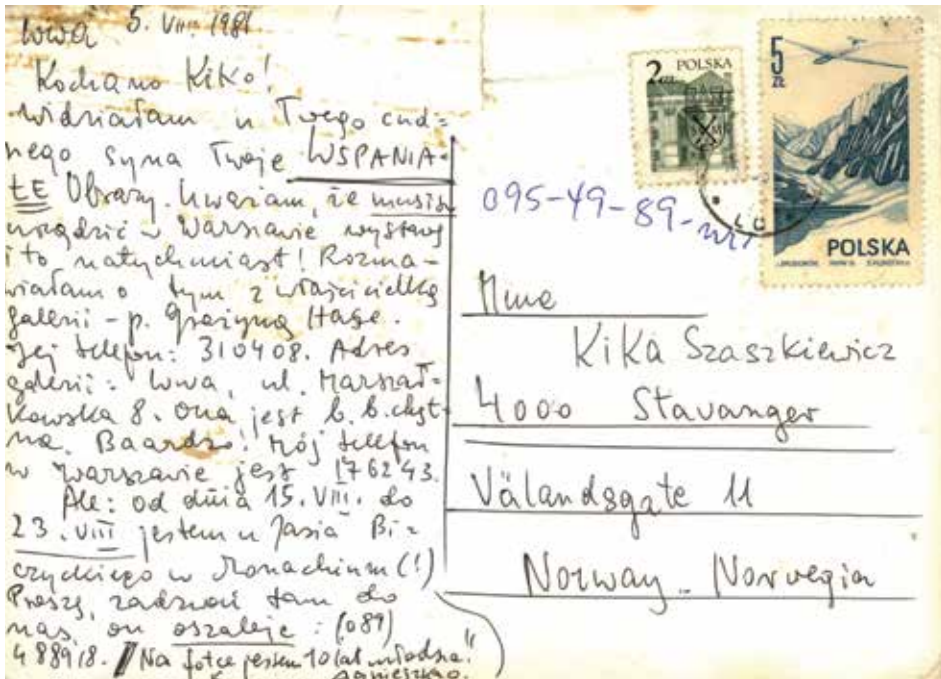 Wwa 5. VIII. 1981
Kochana Kiko!
Widziałam u Twego cud=
nego syna Twoje WSPANIA-
ŁE Obrazy. Uważam, że musisz
urządzić w Warszawie wystawę
i to natychmiast! Rozma-
wiałam o tym z właścicielką
galerii - p. Grażyną Hase.
Jej telefon: 310408. Adres
galerii: Wwa, ul. Marszał=
kowska 8. Ona jest b. b. chęt-
na. Baardzo! Mój telefon
w Warszawie jest 176243.
Ale: od dnia 15. VIII. do
23. VIII jestem u Jasia Bi=
czyckiego w Monachium (!)
Proszę, zadzwoń tam do
nas, on oszaleje: (089)
488918. Na fotce jestem 10 lat młodsza!"
Agnieszka.
2 ZŁ POLSKA
S M
5 ZŁ
POLSKA
095-49-89-
Mme
Kika Szaszkiewicz
4000 Stavanger
Vålandsgate 11
Norway - Norvegia